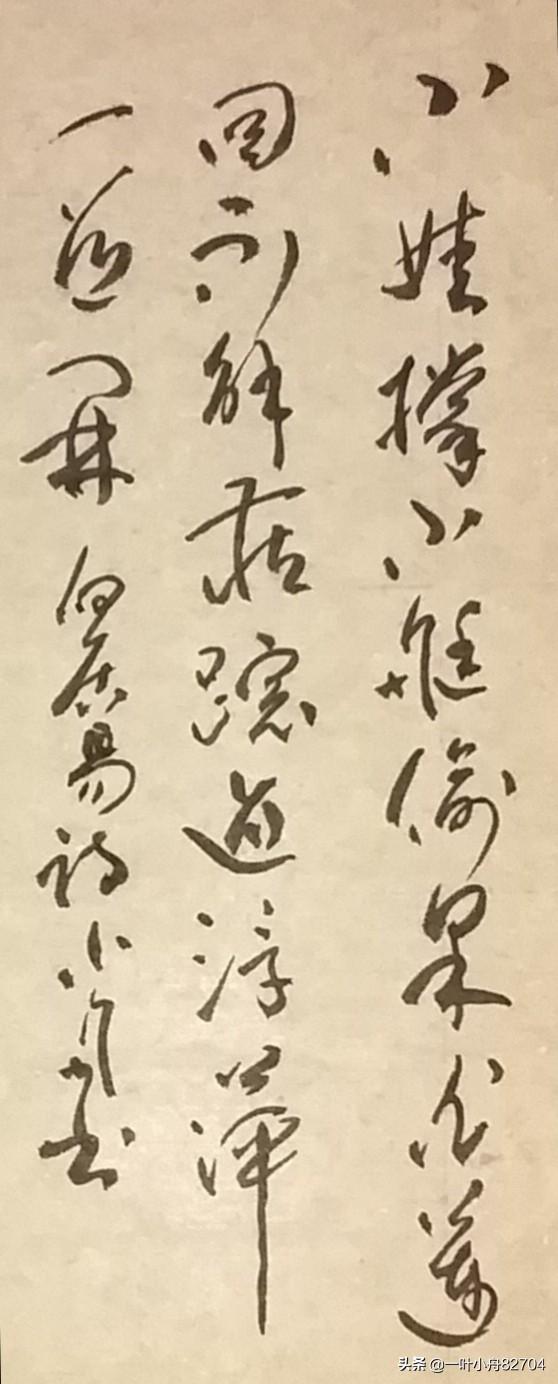 小娃撑小艇偷采白蓮
回不解藏踪迹浮萍
一道開 白居易诗小舟书
头条 @一叶小舟82704